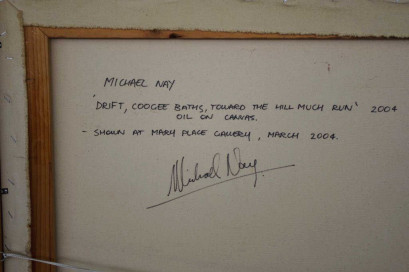 MICHAEL NAY
'DRIFT, COOGEE BATHS, TOWARD THE HILL MUCH RUN' 2004
OIL ON CANVAS.
- SHOWN AT MARY PLACE GALLERY, MARCH 2004.
Michael Nay.